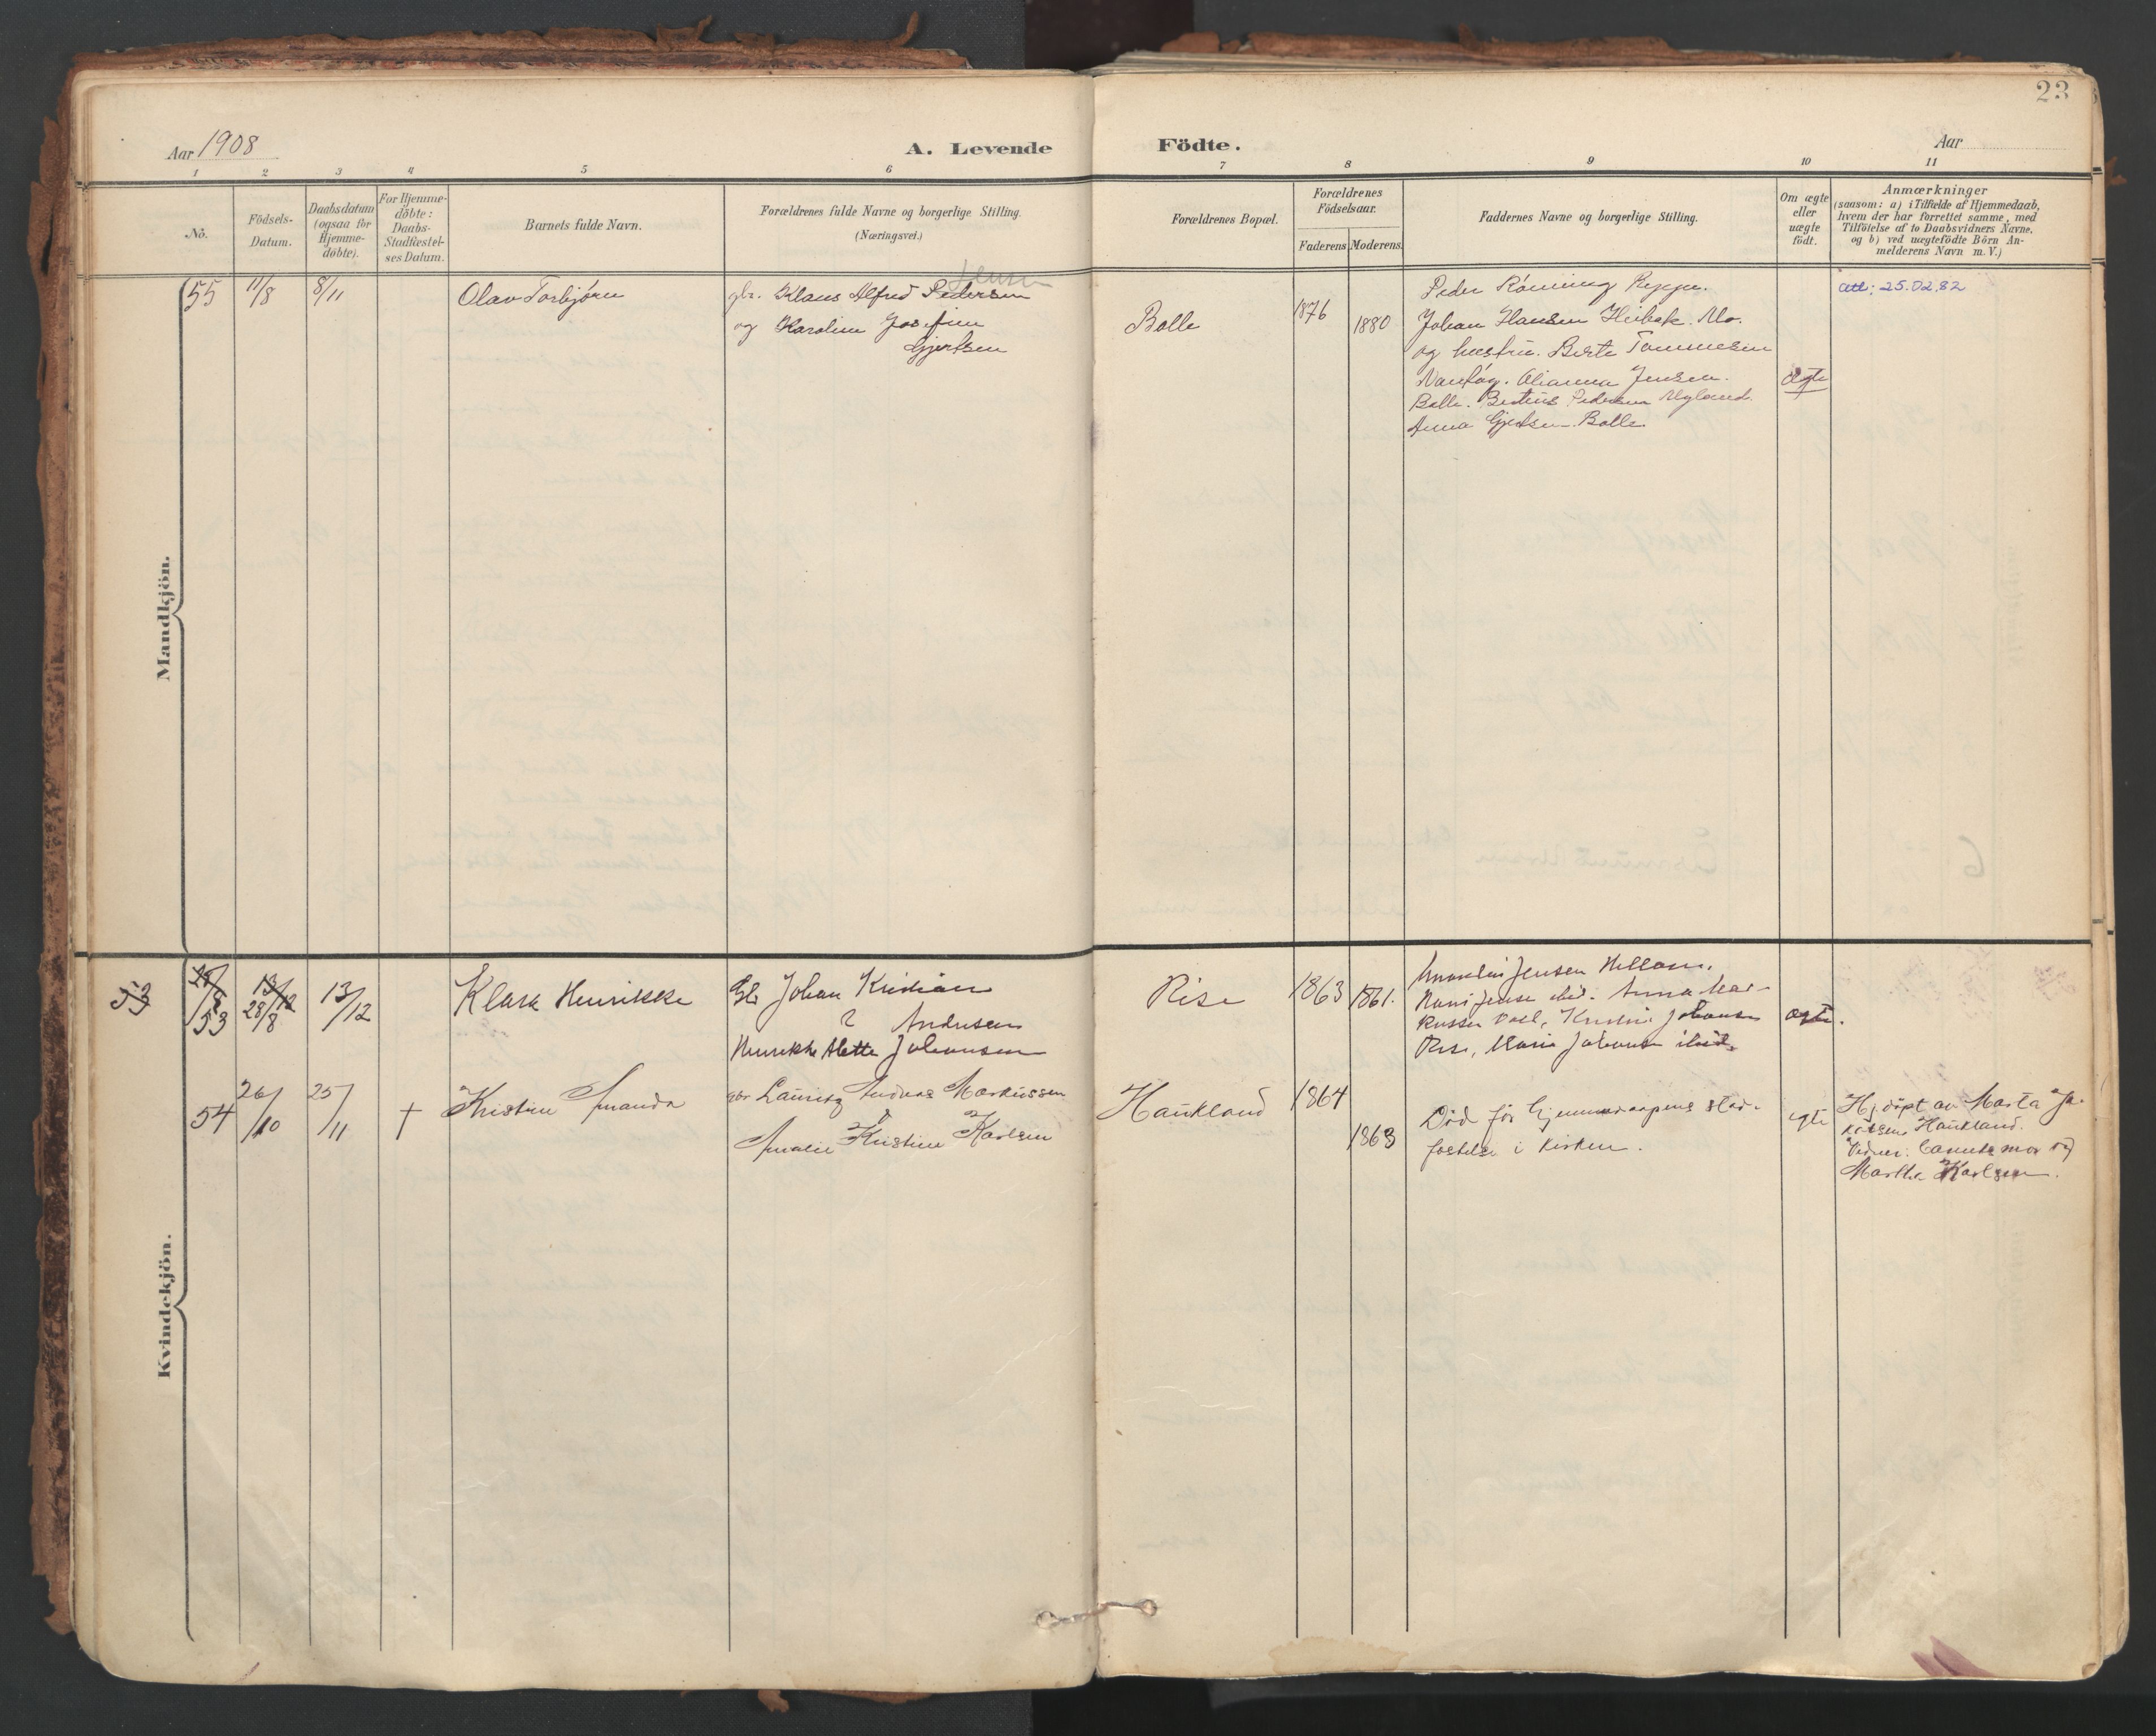 23
Aar 1908
A. Levende Födte.
Aar
1 2 3 4 5 6 7 8 9 10 11
No.
Födsels-
Datum.
Daabsdatum
(ogsaa for
Hjemme-
döbte).
For Hjemme-
döbte:
Daabs-
Stadfæstel-
ses Datum.
Barnets fulde Navn.
Forældrenes fulde Navne og borgerlige Stilling.
(Næringsvei.)
Forældrenes Bopæl.
Forældrenes
Födselsaar.
Faderens. Moderens.
Faddernes Navne og borgerlige Stilling.
Om ægte
eller
uægte
födt.
Anmærkninger
(saasom: a) i Tilfælde af Hjemmedaab,
hvem der har forrettet samme, med
Tilföielse af to Daabsvidners Navne.
og b) ved uægtefödte Börn An-
melderens Navn m. V.)
Mandkjön.
55 11/8 8/11 Olav Torbjørn
Jensen
gbr. Klaus Alfred Pedersen
og Karoline Josefine
Gjertsen
Bolle
1876
1880
Peder Rönning Reppe.
Johan Hansen Heibak. Mo.
og hustru. Berte Tommesen
Nantøg. Olianna Jensen.
Bolle. Pedersen Myland.
Anna Gjertsen. Bolle.
ægte
att: 25.02.82
Kvindekjön.
53
28/8
53
13/12
28/8
13/12
Klara Henrikke
Gbr Johan Kristian
Andersen
Henrikke Alette Johansen
Rise
1863 1861.
Jensen Hellosen.
Hans Jensen ibid. Anna Mar-
kussen Voll, Kristine Johansen
Rise, Maria Johansen ibid.
ægte.
54 26/10 25/11 † Kristine Amanda
gbr Lauritz Andreas Markussen
Amalie Kristine Karlsen
Haukland
1864
1863
Död för hjemmedaapens stad-
fæstelse i kirken.
egte
Hj.döpt av Marta Ja-
kobsen Haukland.
Vidner: barnets mor og
Martha Karlsen.